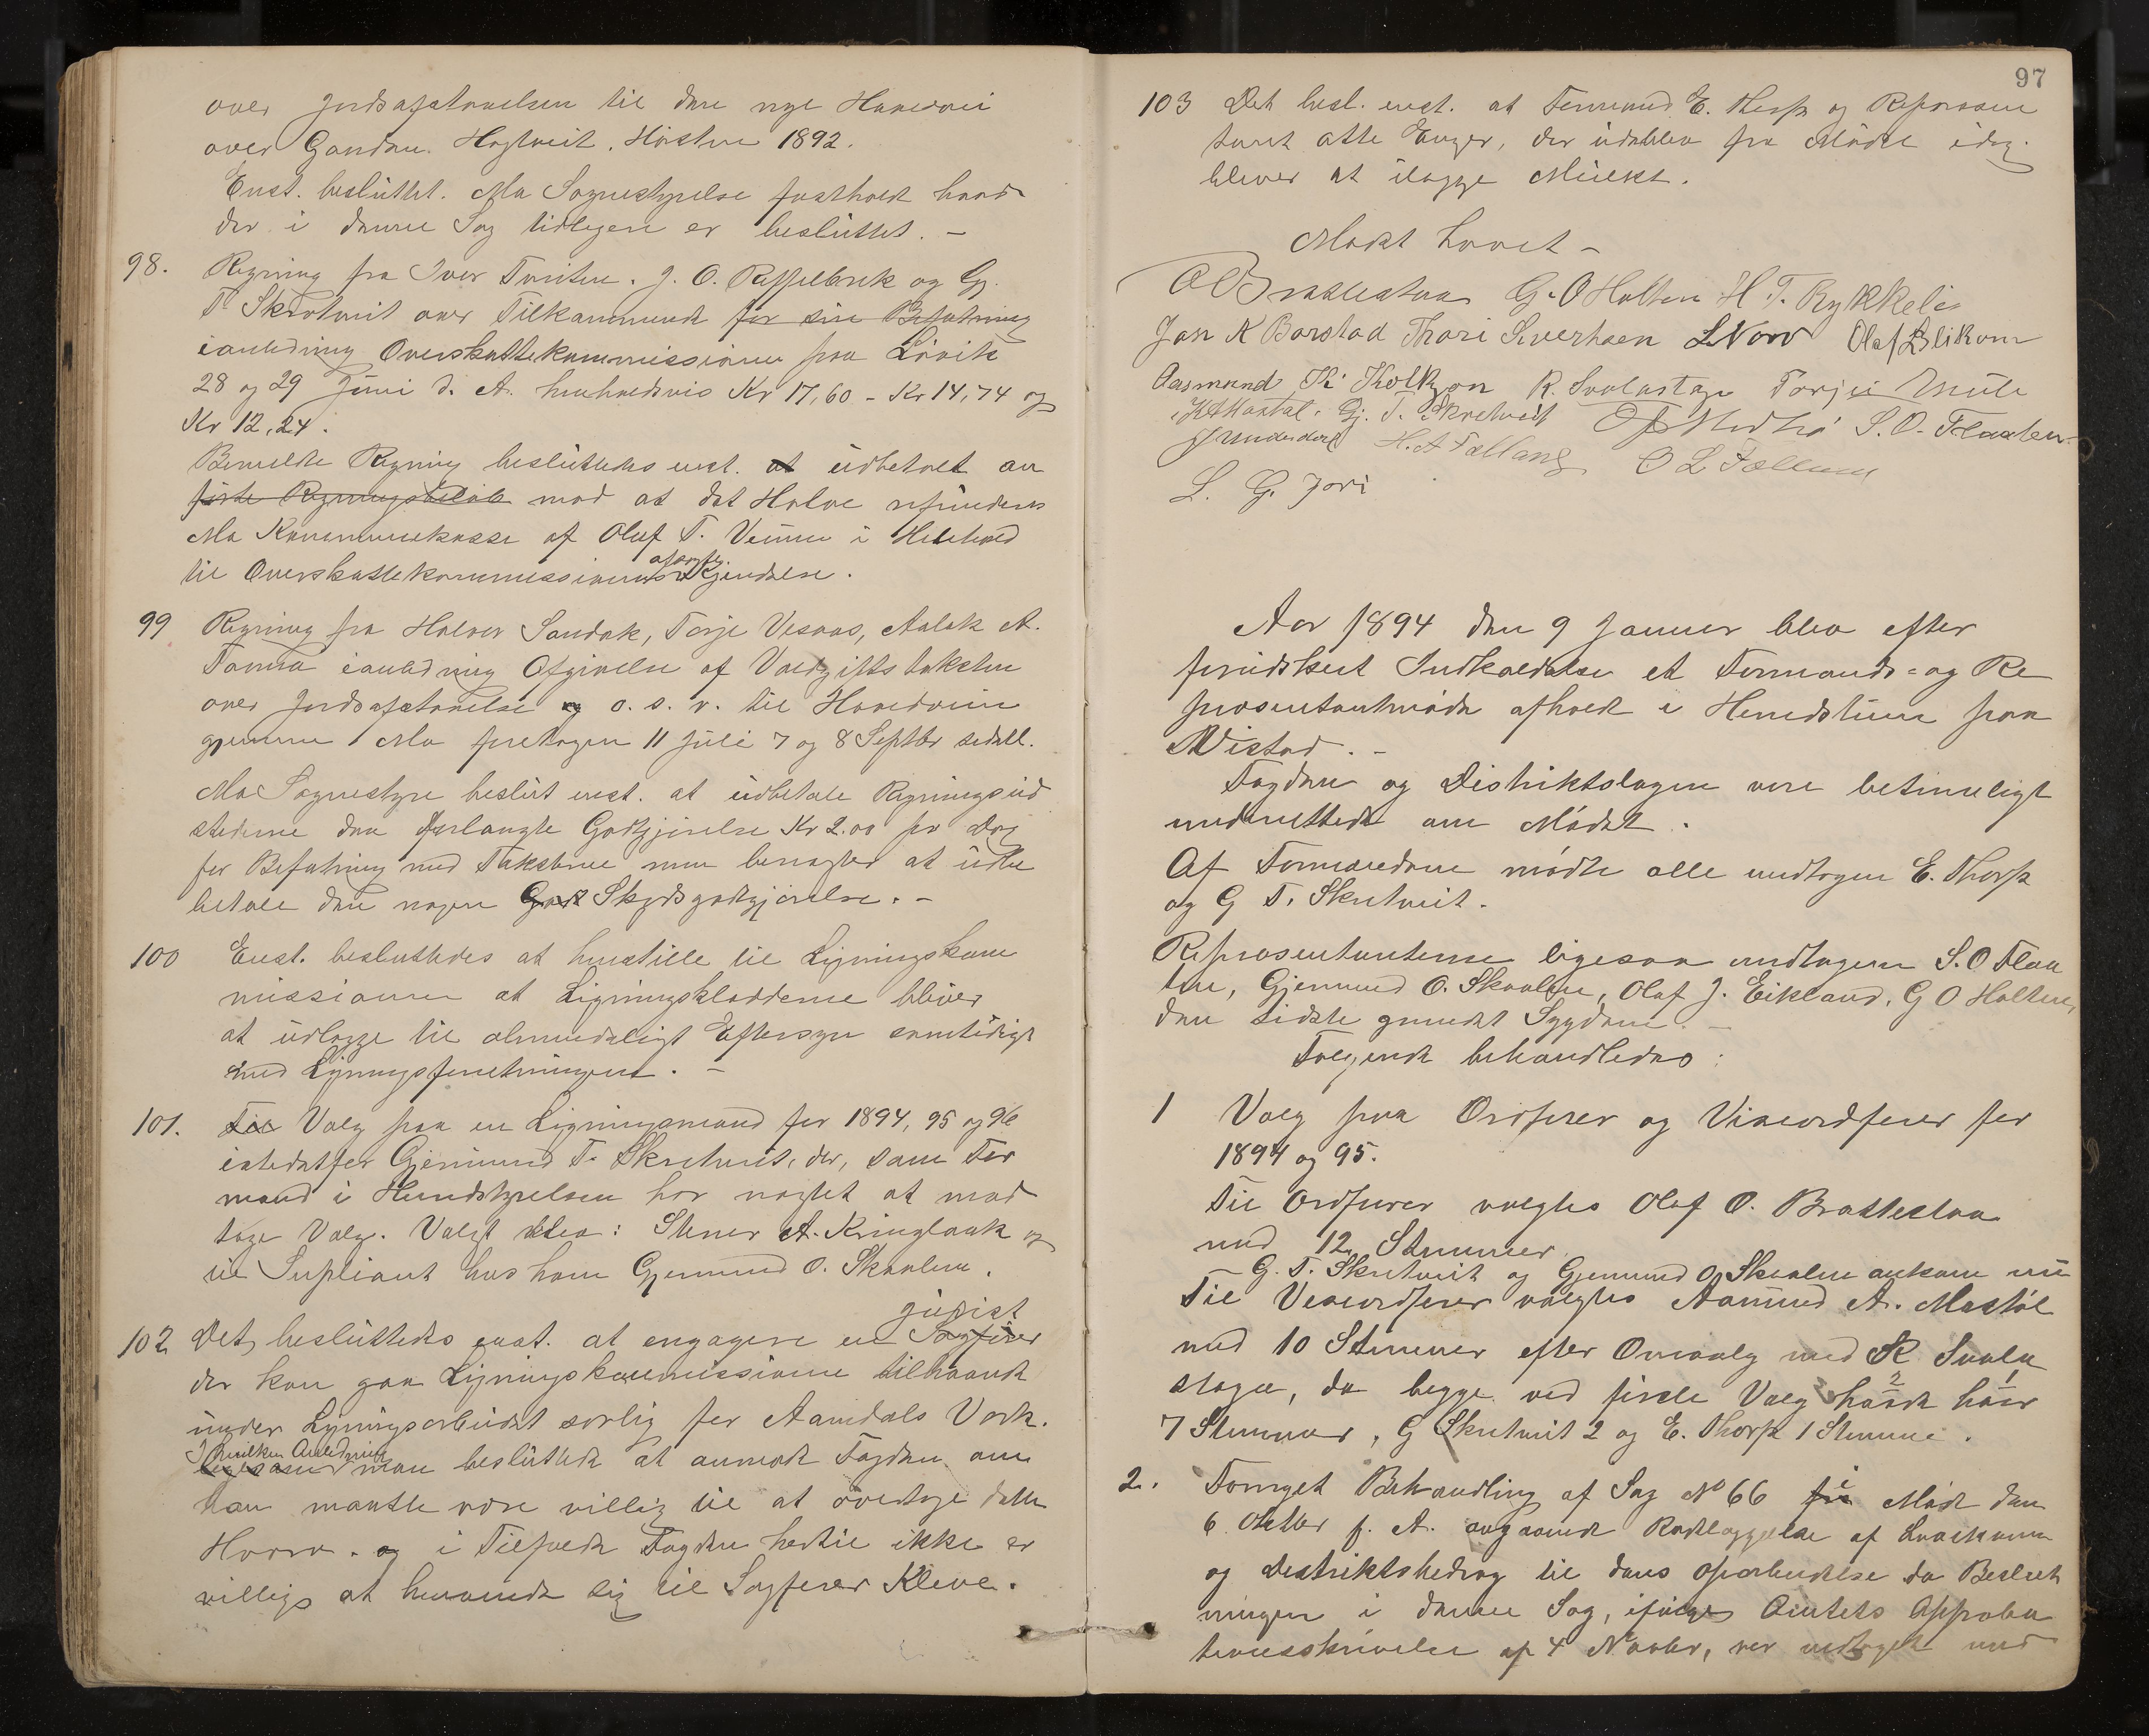 over Jordsafstaaelsen til den nye Hovedvei
over Gaarden Hogtveit. Hösten 1892.
Enst. besluttet. Mo Sognestyrelse fastholdt hvad
der i denne Sag tidligere er besluttet. –
98. Regning fra Iver Tveiten. J. O. Raffelbruk og Gj.
T. Skretveit over Tilkommende for sin Befatning
ianledning Overskattekommissionen paa Lövik
28 og 29 Juni d. A. henholdsvis Kr 17,60 – Kr 14,74 og
Kr 12,24.
Bemeldte Regning besluttedes enst. at udbetalt an
förte Regningsbelöb mod at det Halve refunderes
Mo Kommunekasse af Oluf T. Venum i Henhold
til Overskattekommissionens afsagte Kjendelse.
99 Regning fra Halvor Sandok, Torje Vesaas, Aslak A.
ianledning Afgivelse af Voldgiftstaksten
over Jordsafstaaelse og o. s. v. til Hovedveien
gjennem Mo foretagen 11 Juli 7 og 8 Septbr sidstl.
Mo Sognestyre beslut enst. at udbetale Regningsud
stederne den forlangte Godtgjörelse Kr 2.00 pr Dag
for Befatning med Taksterne men benegter at udbe
betale dem nogen Godt Skydsgodtgjörelse. –
100 Enst. besluttedes at henstille til Ligningskom
missionen at Ligningskladderne bliver
at udlægge til almindeligt Eftersyn samtidigt
med Ligningsforretningen. –
101. Til Valg paa en Ligningsmand for 1894, 95 og 96
istedetfor Gjermund T. Skretveit, der, som For
mand i Herredstyrelsen har nægtet at mod
tage Valg. Valgt blev: Stener A. Kringlaak og
til Supliant hos ham Gjermund O. Skaalen.
102 Det besluttedes enst. at engagere en Sagförer jurist
der kan gaa Ligningskommissionen tilhaande
under Ligningsarbeidet særlig for Aamdals Værk.
I hvilken Anledning man besluttede at anmode Fogden om
han maatte være villig til at overtage dette
Hverv. og i Tilfælde Fogden hertil ikke er
villig at henvende sig til Sagförer Kleve.
97
103 Det besl. enst. at Formand E. Thorp og Repræsen
tant Atle Enger, der udeblev fra Mödet idag
bliver at ilægge Mulkt.
Mödet hævet –
O O Brattestaa G. O Holten H T. Rykkeli
Jon K Borstad Thore Siverhsen L Norv Olaf Blikom
Aasmund K. Kolkjøn R. Svalastoga Torjei Mule
Gj. T. Skretveit S. O. Flaaten
H. A Fælland O L Fællum
L. G. Jori
Aar 1894 den 9 Januar blev efter
forudskeet Indkaldelse et Formands= og Re
præsentantmöde afholdt i Herredstuen paa
Nistad. –
Fogden og Distriktslægen vare betimeligt
underrettede om Mödet.
Af Formændene mödte alle undtagen E. Thorp
og G T. Skretveit.
Repræsentanterne ligesaa undtagen S. O Flaa
ten, Gjermund O. Skaalen, Olaf J. Eikland, G O Holten,
den sidste grundet Sygdom. –
Fölgende behandledes:
1 Valg paa Ordförer og Viceordförer for
1894 og 95.
Til Ordförer valgtes Olaf O. Brattestaa
med 12 Stemmer
– G. T. Skretveit og Gjermund O Skaalen ankom nu
Til Viceordförer valgtes Aamund A. Mostöl
med 10 Stemmer efter Omvalg med R Svala
stoga, da begge ved förste Valg havde hver
7 Stemmer, G Skretveit 2 og E. Thorp 1 Stemme.
2. Fornyet Behandling af Sag No 66 fra i Möde den
6 Oktbr f. A. angaaende Rodelæggelse af
og Distriktsbidrag til dens Oparbeidelse da Beslut
ningen i denne Sag, ifölge Amtets Approba
tionsskrivelse af 4 Novbr, var vedtaget med